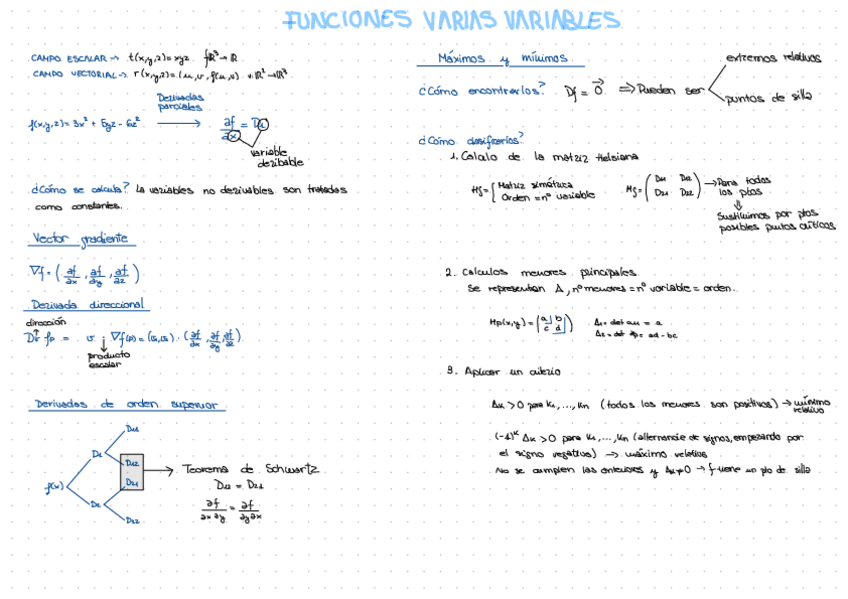 FUNCIONES VARIAS VARIABLES
CAMPO ESCALAR → t(x,y,z)=xyz f:ℝ³→ℝ
CAMPO VECTORIAL → r(x,y,z)=(u,v,f(u,v))
Derivadas
parciales
f(x,y,z)=3x² + 5yz - 6z² → ∂f/∂x = D₁
variable
deribable
¿Cómo se calcula? La variables no derivables son tratadas
como constantes.
Vector gradiente
∇f = (∂f/∂x, ∂f/∂y, ∂f/∂z)
Derivada direccional
dirección
producto
escalar
Derivadas de orden superior
f(x)
D₁
D₂
D₁₁
D₁₂
D₂₁
D₂₂
→ Teorema de Schwartz
D₁₂ = D₂₁
∂f/∂x∂y = ∂f/∂y∂x
Máximos y mínimos
¿Cómo encontrarlos? Df = 0⃗ ⇒ Pueden ser
extremos relativos
puntos de silla
¿Cómo clasificarlos?
1. Calculo de la matriz Hessiana
Hf = { Matriz simétrica
Orden = nº variable
Hf = (D₁₁ D₁₂
D₂₁ D₂₂) → Para todos
los ptos
⇓
Sustituimos por ptos
posibles puntos críticos
2. Calculos menores principales
Se representan Δ, nº menores = nº variable = orden.
Hp(x,y) = (a b
c d)
Δ₁ = det a₁₁ = a
= ad - bc
3. Aplicar un criterio
Δk > 0 para k₁,...,kn (todos los menores son positivos) → mínimo
relativo
(-1)ᵏ Δk > 0 para k₁,...,kn (alternancia de signos, empezando por
el signo negativo) → máximo relativo
No se cumplen las anteriores y Δk≠0 → f tiene un pto de silla